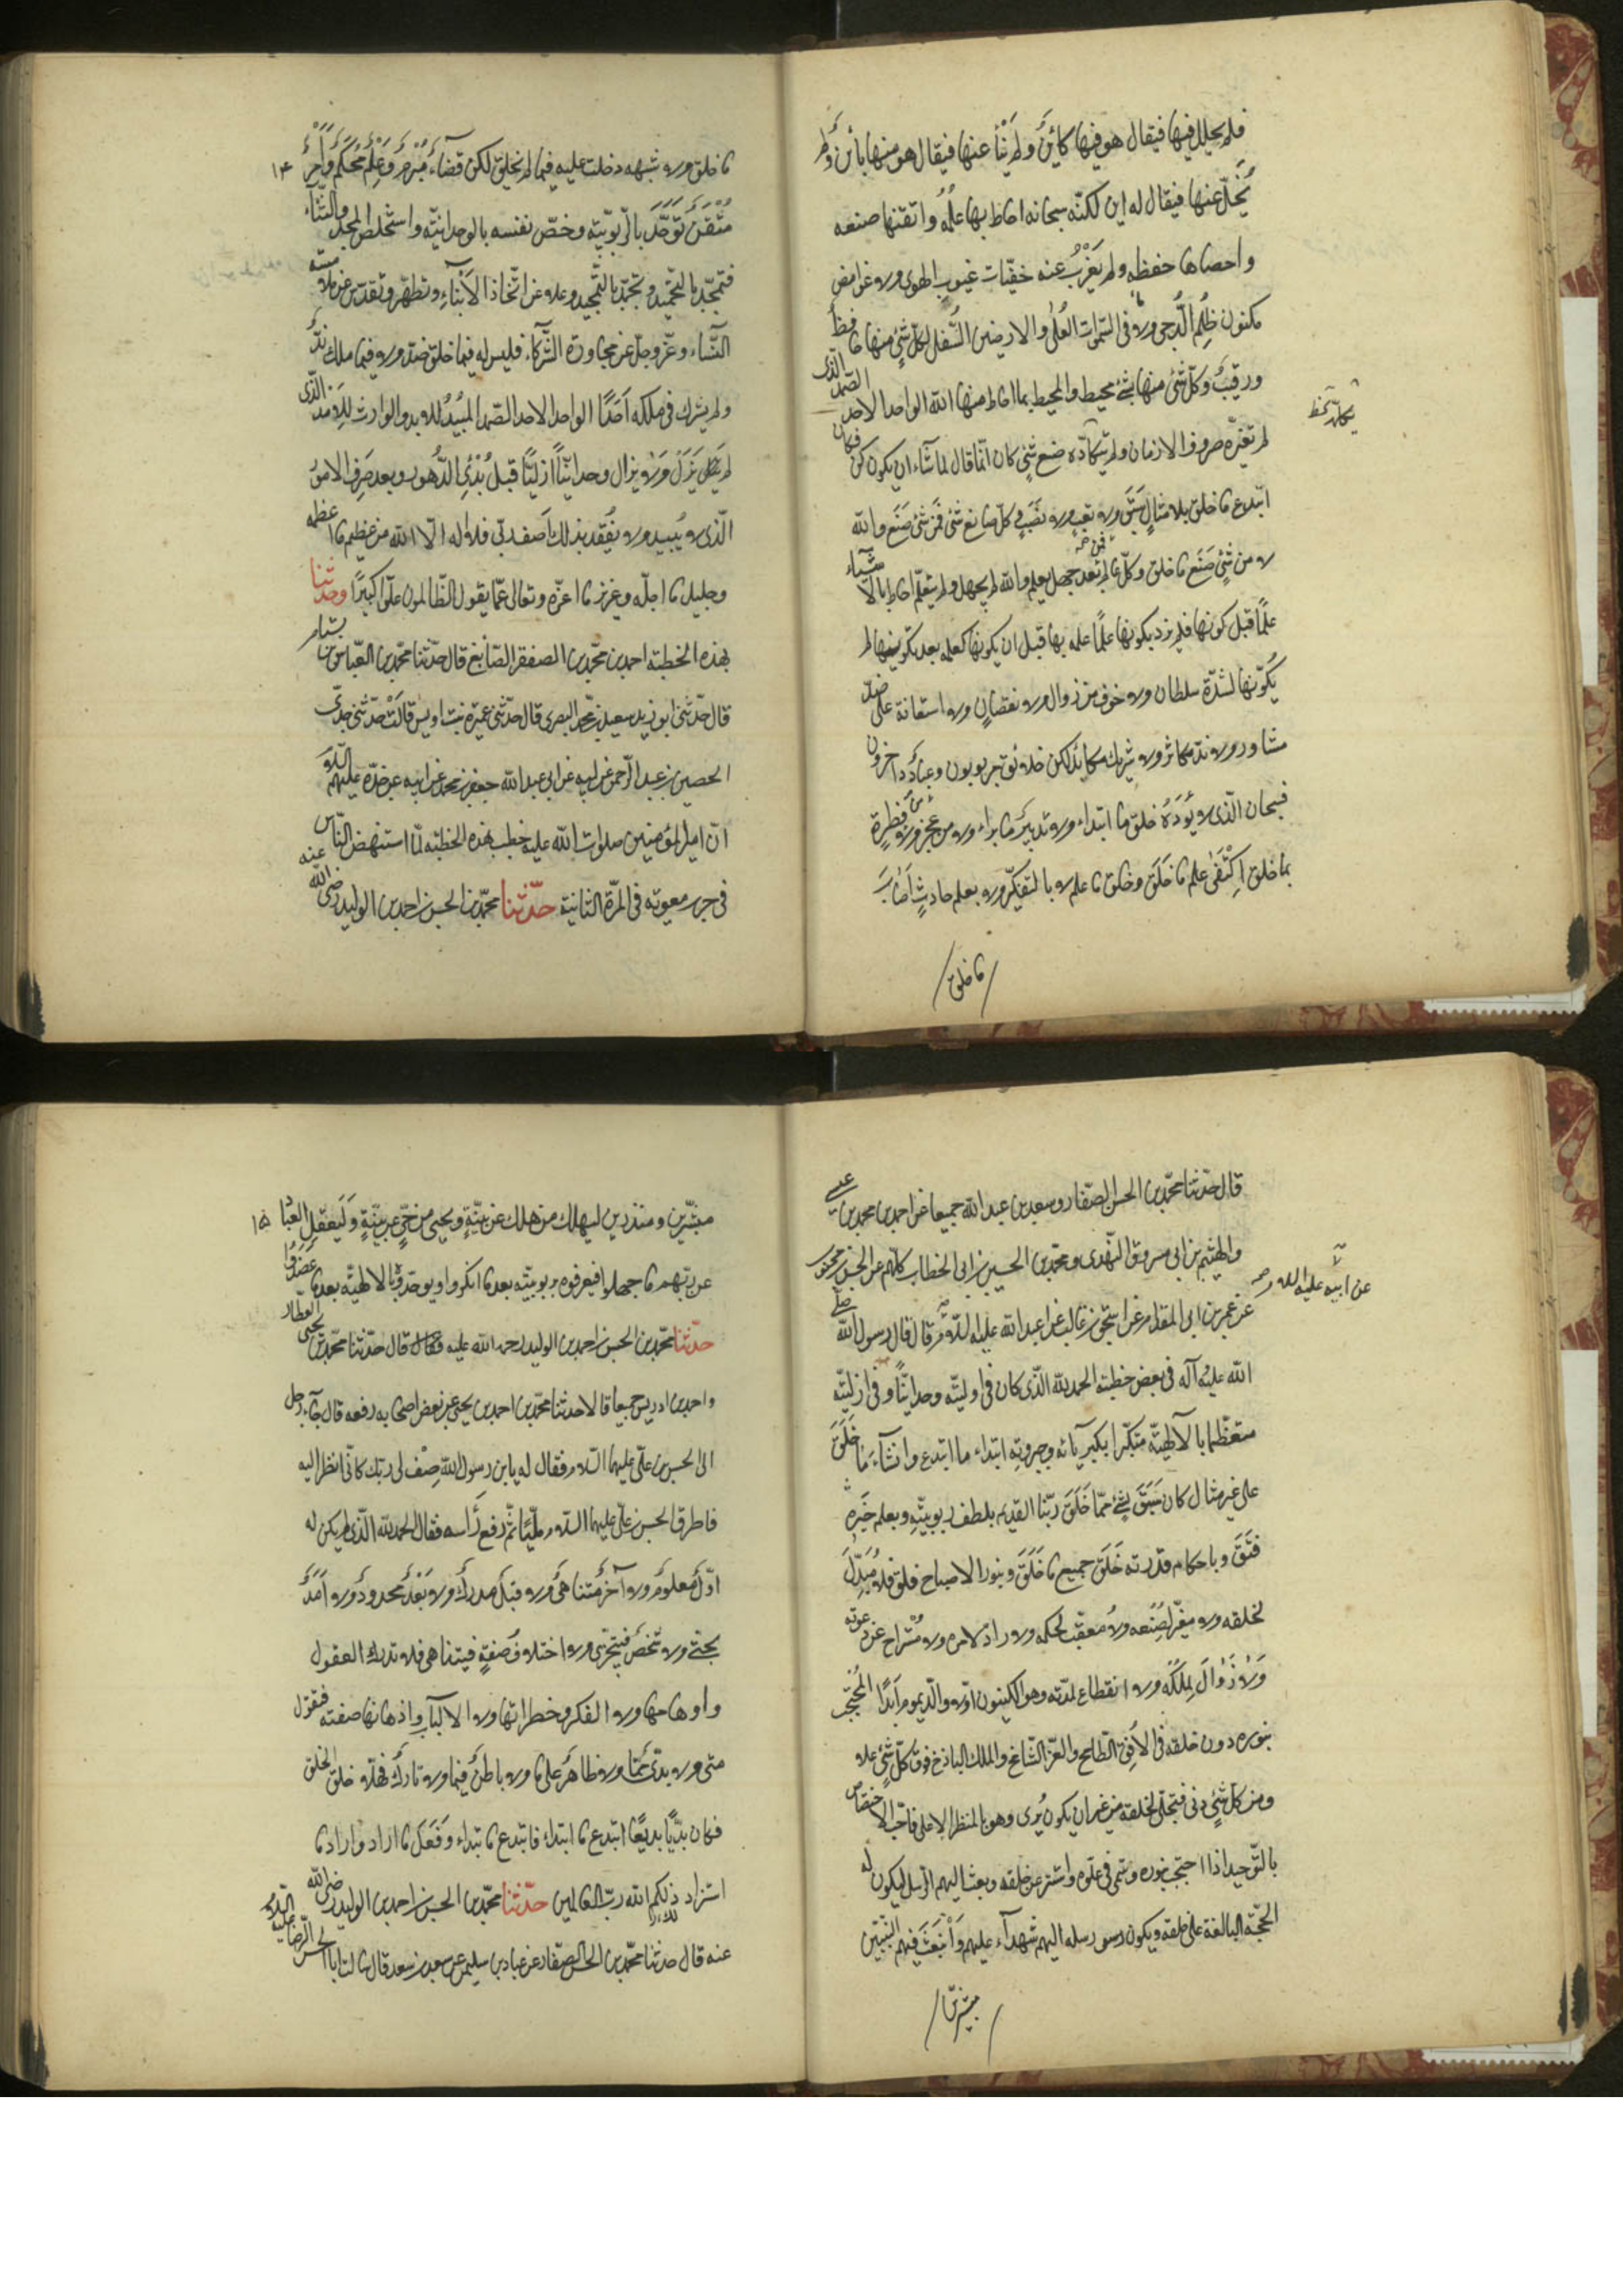 فلم يحلل فيها فيقال هو فيها كائن ولم يَنْأ عنها فيقال هو منها بائن ولم
يَخْلُ عنها فيقال له اين لكنّه سبحانه احاط بها علمُه واتقنها صنعه
واحصاها حفظه ولم يَعْزُبْ عنه خفيّات غيوب الهوى ولا غوامض
مكنون ظُلَمِ الدُّجى ولا ما فى السّموات العُلى والارضين السُّفلى لكلّ شئ منها حافظ
ورقيبٌ وكلّ شئ منها بشئ محيط والمحيط بما احاط منها الله الواحد الاحد الصّمد الّذى
لم تغيّره صروف الازمان ولم يتكأّده صنع شئ كان انّما قال لما شاء ان يكون كن فكان
يتكأّد خ ط
ابتدع ما خلق بلا مثالٍ سَبَقَ ولا تعب ولا نَصَبٍ وكلّ صانع شئ فمن شئ صَنَع والله
لا من شئ صَنَع ما خلق وكلّ عالم فمن بعد جهل يعلم والله لم يجهل ولم يتعلّم احاط بالاشياء
علمًا قبل كونها فلم يزدد بكونها علمًا علمه بها قبل ان يكوّنها كعلمه بعد تكوينها لم
يُكوّنها لشدّة سلطان ولا خوف من زوال ولا نقصانٍ ولا استعانة على ضدّ
مشاور ولا ندّ مكاثر ولا شريك مكائد لكن خلائق مربوبون وعباد داخرون
فسبحان الّذى لا يؤدُهُ خلق ما ابتداء ولا تدبير ما براء ولا من عجز ولا من فطرةٍ
بما خلق اكتفى علم ما خَلَقَ وخلق ما علم لا بالتفكّر ولا بعلم حادثٍ اصَابَ
ما خلق
ما خلق ولا شبهه دخلت عليه فيما لم يخلق لكن قضاءٌ مُبْرمٌ وعِلمٌ محكمٌ وامرٌ
١٤
مُتْقَنٌ توَحَّدَ بالرّبوبيّة وخصّ نفسه بالوحدانيّة واستخلص المجد والثّناء
فتمجّد بالتّمجيد وتحمّد بالتّحميد وعلا عن اتّخاذ الأَبْناءِ وتطهّر وتقدّس عن ملامسة
النّساء وعزّ وجلّ عن مجاورة الشّركاء فليس له فيما خلق ضدٌّ ولا فيما ملك ندٌّ
ولم يشرك فى ملكه اَحَدًا الواحد الاحد الصّمد المُبيدُ للابد والوارث للامد الّذى
لم يَزَلْ ولا يزال وحدانيّاً ازليّاً قبلَ بُدئِ الدُّهور وبعد صَرفِ الامور
الّذى لا يُبيد ولا يُفقد بذلك اَصف ربّى فلا اله الّا الله من عظيم ما اعظمه
وجليل ما اجلّه وعزيز ما اعزّه وتعالى عمّا يقول الظّالمون علوّاً كبيرًا وحدّثنا
بهذه الخطبة احمد بن محمّد بن الصقر الصّائغ قال حدّثنا محمّد بن العبّاس بن بسّام
قال حدّثنى ابو زيد سعيد بن محمّد البصرى قال حدّثنى عمرة بنت اويس قالَتْ حدّثنى جدّى
الحصين بن عبد الرّحمن عن ابيه عن ابى عبد الله جعفر بن محمد عن ابيه عن جدّه عليهم السّلام
انّ امير المؤمنين صلوات الله عليه خطب بهذه الخطبة لمّا استنهض النّاس
فى حرب معوية فى المرّة الثانية حدّثنا محمّد بن الحسن بن احمد بن الوليد رضى الله عنه
قال حدّثنا محمّد بن الحسن الصّفّار وسعد بن عبد الله جميعا عن احمد بن محمد بن عيسى
والهيثم بن ابى مسروق النّهدى ومحمّد بن الحسين بن ابى الخطاب كلّهم عن الحسن بن محبوب
عن عمرو بن ابى المقدام عن اسحق بن غالب عن ابى عبد الله عليه السّلام قال قال رسول الله صلّى
عن ابيه عليه السلم
الله عليه وآله فى بعض خطبته الحمد لله الّذى كان فى اوليّته وحدانيّاً وفى ازليّته
متعظّما بالآلهيّة متكبّرا بكبريائه وجبروته ابتداء ما ابتدع وانشاء ما خَلَقَ
على غير مثال كان سَبَقَ لشئ ممّا خَلَقَ ربّنا القديم بلطف ربوبيّته وبعلم خُبْره
فَتَقَ وباحكام قدرته خَلَقَ جميع ما خَلَقَ وبنور الاصباح فلق فلا مُبَدِّلَ
لخلقه ولا مغيّر لصُنعه ولا مُعقّب لحكمه ولا رادّ لامره ولا مُسْتراح عن دعوته
وَلا زَوٰالَ لِمُلكه ولا انقطاع لمدّته وهو الكينون اوّلا والدّيموم اَبَدًا المُحتجب
بنوره دون خلقه فى الاُفق الطامح والعزّ الشّامخ والملك الباذخ فوق كلّ شئ علا
ومن كلّ شئ دنى فتجلّى لخلقه من غير ان يكون يُرى وهو بالمنظر الاعلى فاحبّ الاختصاص
بالتّوحيد اذا احتجب بنوره وسَمى فى علوّه واستتر عن خلقه وبعث اليهم الرّسل ليكون له
الحجّة البالغة على خلقه ويكون رسله اليهم شهدآء عليهم وَابْتَعَثَ فيهم النّبيّين
مبشّرين
مبشّرين ومنذرين ليهلك من هلك عن بيّنةٍ ويحيى من حىّ عن بيّنةٍ وَلِيَعْقِلَ العباد
١٥
عن ربّهم ما جهلوا فيعرفوه بربوبيّته بعد ما انكروا ويوحّدوه بالالهيّة بعد ما عَضَدُوا
حدّثنا محمّد بن الحسن بن احمد بن الوليد رحمه الله عليه قال حدّثنا محمّد بن يحيى العطّار
واحمد بن ادريس جميعا قالا حدثنا محمّد بن احمد بن يحيى عن بعض اصحابه رفعه قال جآء رجل
الى الحسن بن علىّ عليهما السّلام فقال له يا بن رسول الله صِفْ لى ربّك كانّى انظر اليه
فاطرق الحسن بن علىّ عليهما السّلام مليّاً ثمّ رفع رَأسه فقال الحمد لله الّذى لم يكن له
اوّلٌ معلومٌ ولا آخرٌ متناهىٌ ولا قبلٌ مدركٌ ولا بَعْدٌ محدودٌ ولا اَمَدٌ
بحتّى ولا شخصٌ فيتجزّى ولا اختلاف صفةٍ فيتناهى فلا تدرك العقول
واوهامها ولا الفكر وخطراتها ولا الالباب واذهانها صفته فتقول
متى ولا بدئ ممّا ولا ظاهرٌ على ما ولا باطنٌ فيما ولا تاركٌ فهلّا خلق الخلق
فكان بديّاً بديعًا ابتدع ما ابتداء فابتدع ما ابتداء وفَعَل ما اراد واراد ما
استزاد ذلكم الله ربّ العالمين حدّثنا محمّد بن الحسن بن احمد بن الوليد رضى الله
عنه قال حدثنا محمّد بن الحسن الصّفّار عن عباد بن سليمن عن سعد بن سعد قال سالت ابا الحسن الرّضا عليه السّلام